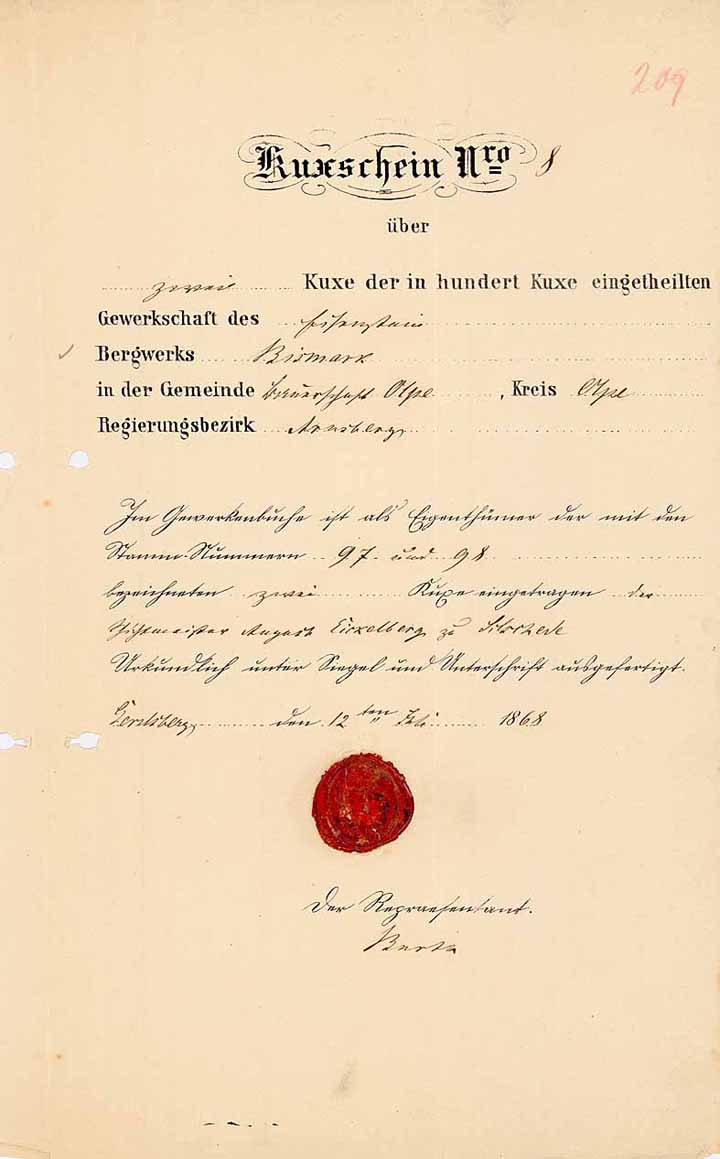 209
Kuxschein Nro 8
über
zwei Kuxe der in hundert Kuxe eingetheilten
Gewerkschaft des Eisenstein
Bergwerks Bismark
in der Gemeinde Bauerschaft Olpe, Kreis Olpe
Regierungsbezirk Arnsberg
Im Gewerkenbuche ist als Eigenthümer der mit den
Stamm-Nummern 97 und 98
bezeichneten zwei Kuxe eingetragen der
August Eickelberg zu Silschede
Urkundlich unter Siegel und Unterschrift ausgefertigt.
Gevelsberg, den 12ten 1868
Der Repraesentant.